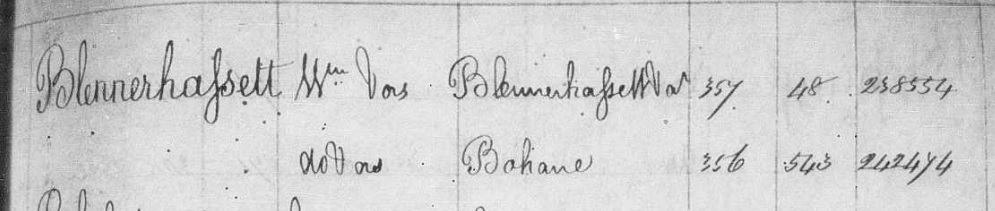 Blennerhassett Wm & ors Blennerhassett & or 357 48 238554
do & ors Bohane 356 543 242474